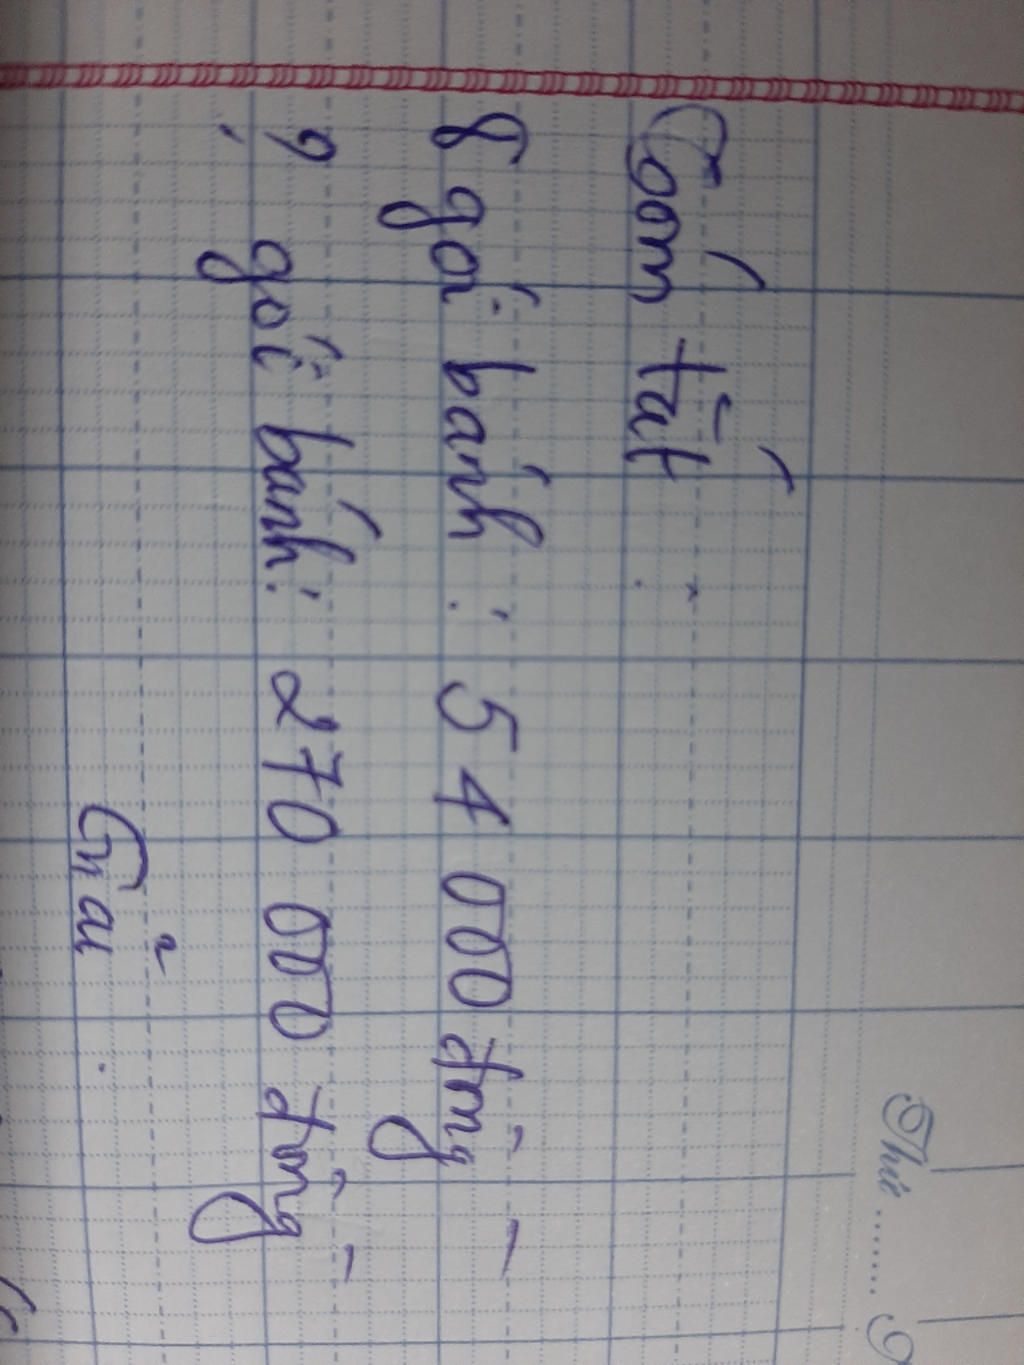 Tóm tắt:
8 gói bánh: 54 000 đồng
? gói bánh: 270 000 đồng
Giải
Thứ